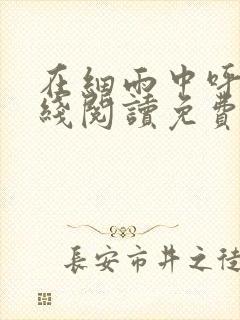 在細雨中呼
綫閱讀免費
長安市井之徒